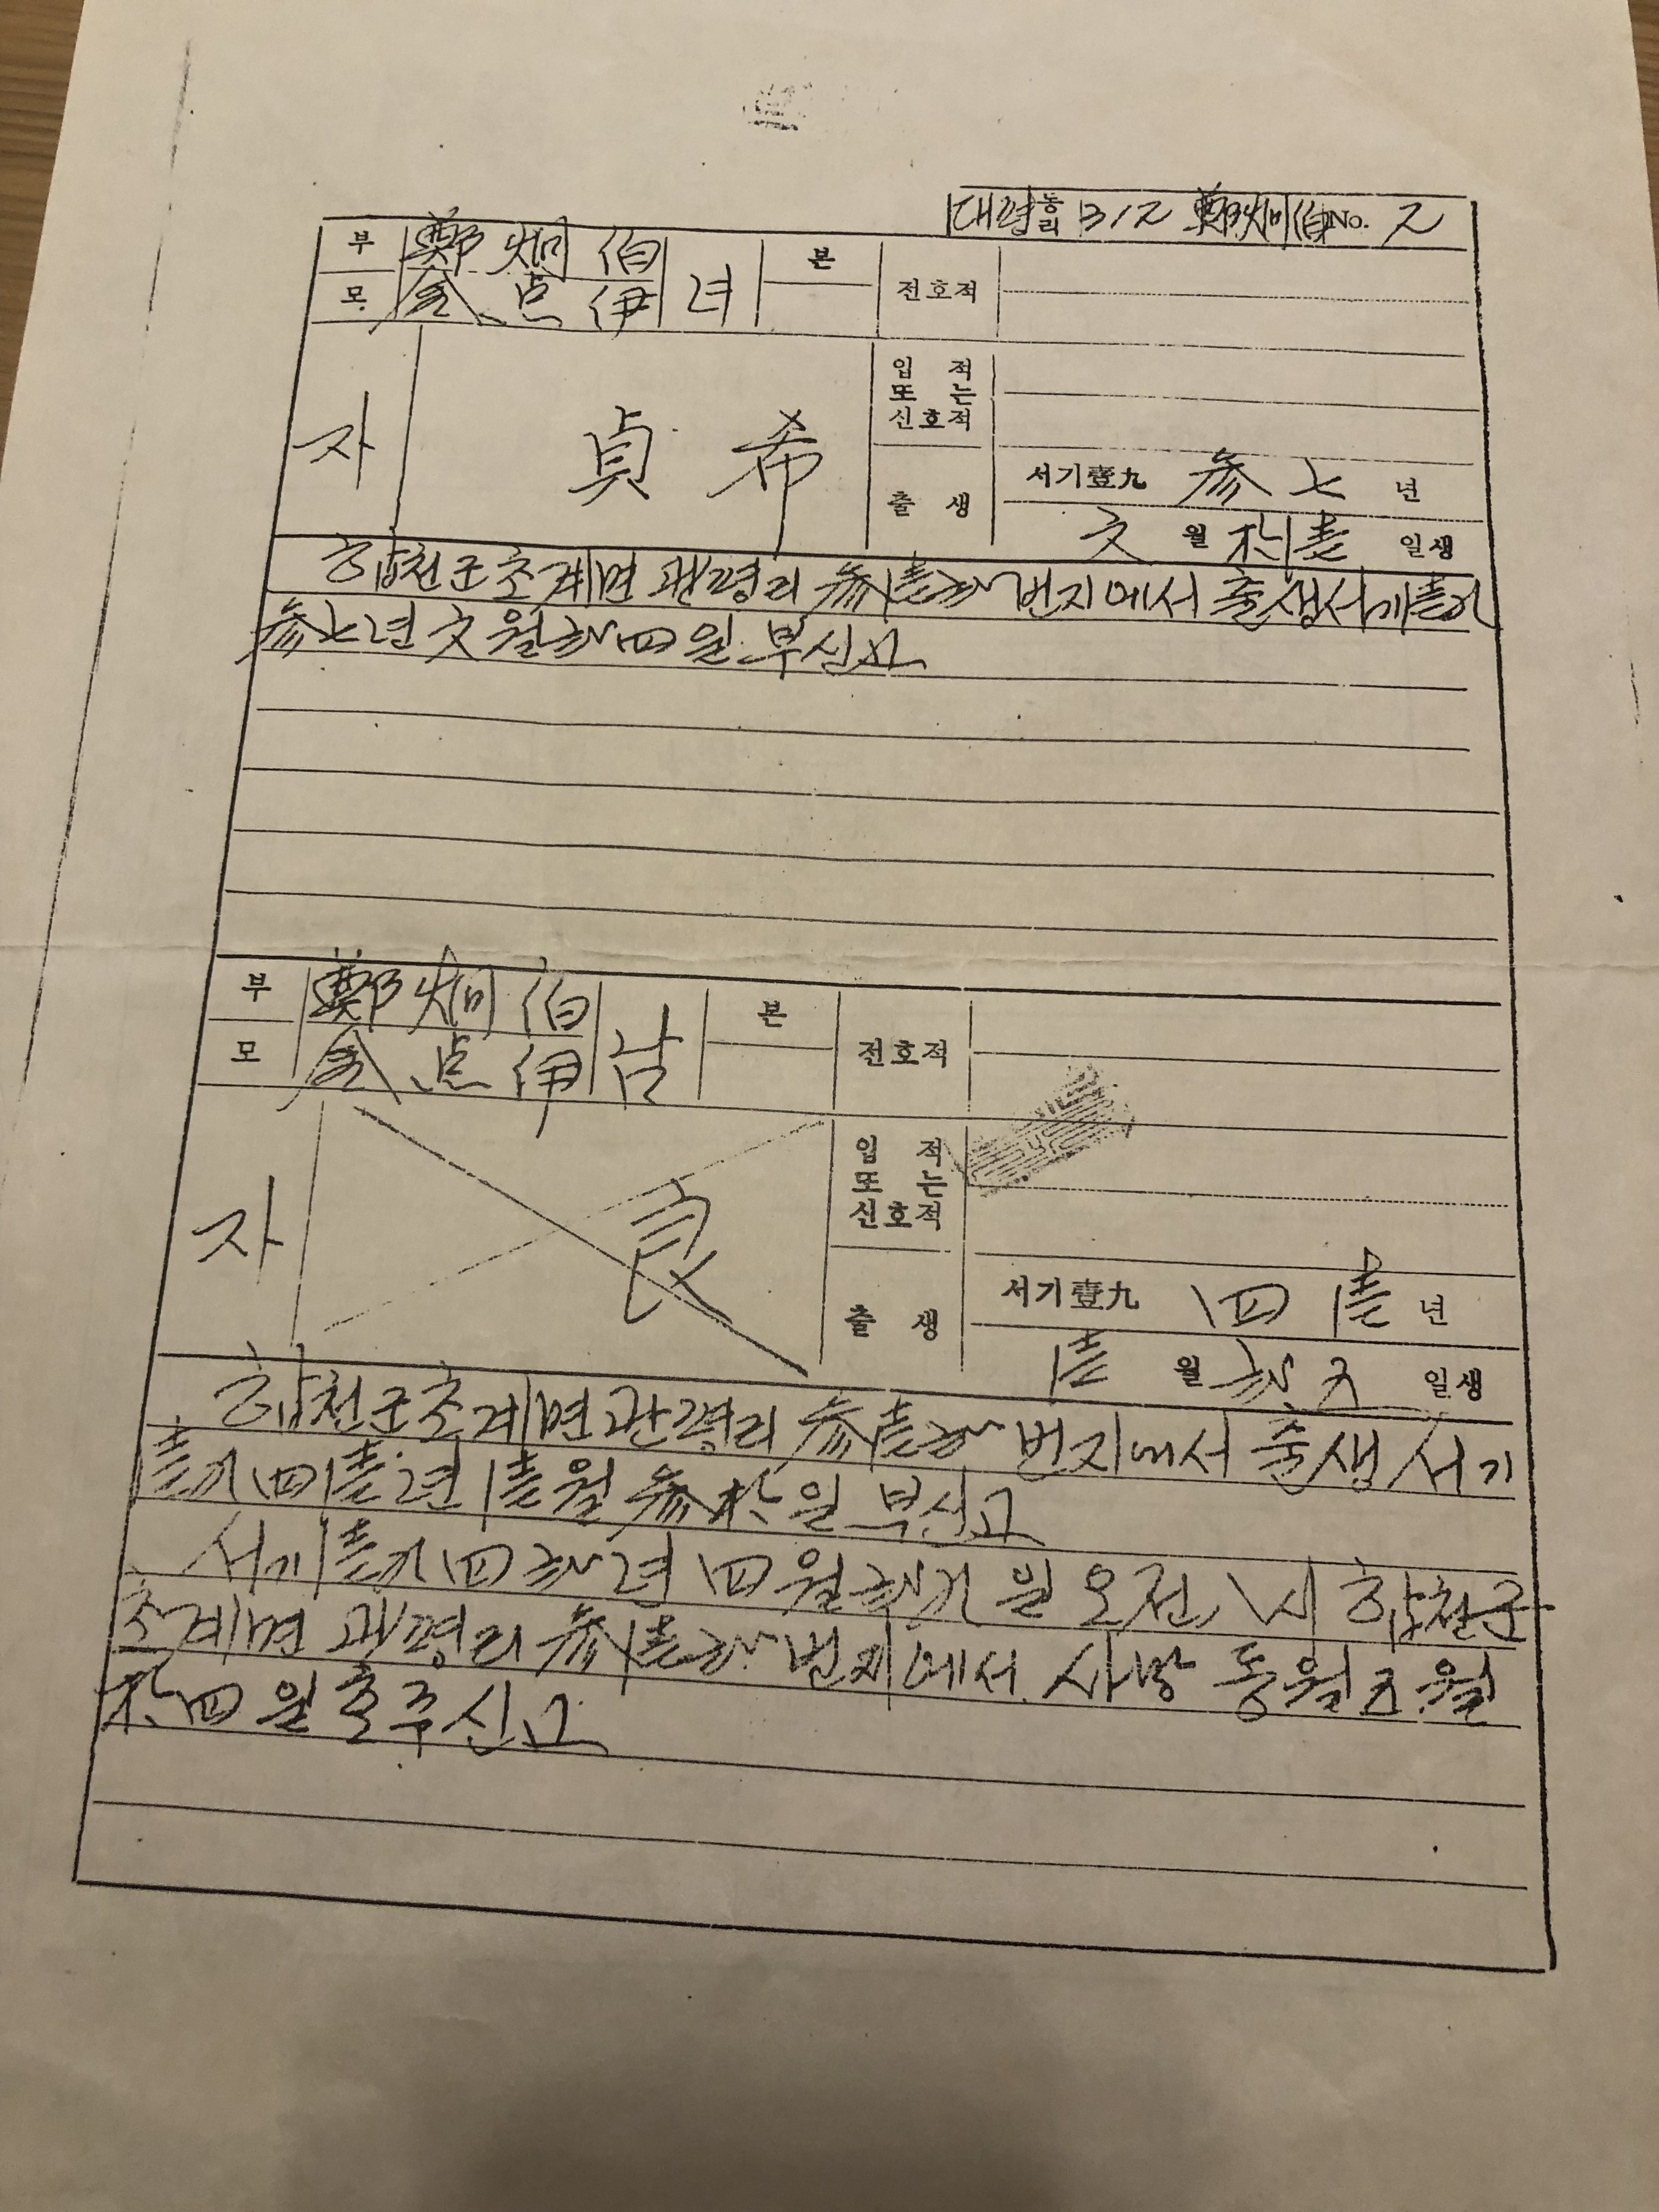 대평 동리 312 鄭炯伯 No. 2
부 鄭炯伯 녀 본 전호적
모 金点伊
자 貞希 입적 또는 신호적
출생 서기壹九 参七 년
六 월 拾壹 일생
합천군초계면관평리 参壹弐 번지에서 출생 서기壹九
参七년 六월弐四일 부신고
부 鄭炯伯 남 본 전호적
모 金点伊
자 良 입적 또는 신호적
출생 서기壹九 四壹 년
壹 월 弐五 일생
합천군초계면관평리 参壹弐 번지에서 출생 서기
壹九四壹년 壹월 参拾일 부신고
서기壹九四弐년 四월弐九일 오전 시 합천군
초계면관평리 参壹弐 번지에서 사망 동월五월
拾四일 호주신고